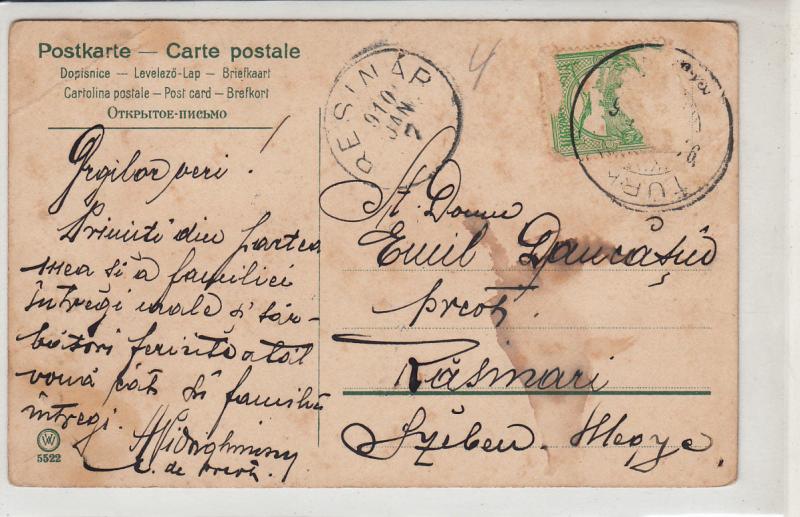 Postkarte — Carte postale
Dopisnice — Levelező-Lap — Briefkaart
Cartolina postale — Post card — Brefkort
Открытое-письмо
RESINÁR
910 JAN 7
4
TUR
Drgilor veri!
Primiti din partea
mea si a familiei
întregi urale d' sâr-
bători fericite atât
vouă cât si familiei
întregi.
de
St. Domn
Emil Dancașiu
preot.
Răsinari
Szeben-Megye
W
5522